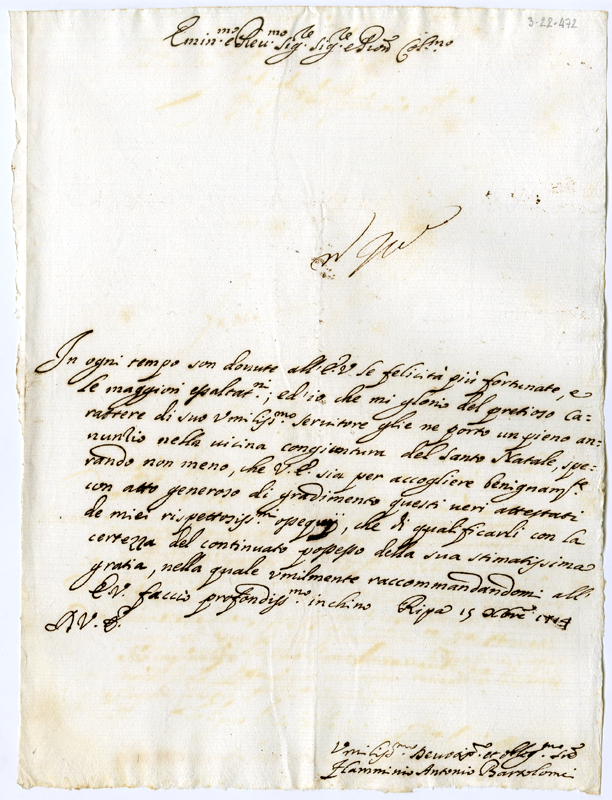 3-22-472
Emin.mo e Reu.mo Sig.re Sig.re e Pron Col.mo
In ogni tempo son douute all'E.V. le felicità più fortunate, e
le maggiori essaltat.ni; ed' io che mi glorio del pretioso Ca-
rattere di suo Vmiliss.mo seruitore glie ne porto un pieno an-
nunzio nella uicina congiuntura del Santo Natale, spe-
rando non meno, che V.E. sia per accogliere benignam.te
con atto generoso di gradimento questi ueri attestati
de miei rispettosiss.mi ossequij, che di qualificarli con la
certezza del continuato possesso della sua stimatissima
gratia, nella quale vmilmente raccommandandomi all'
E.V. faccio profondiss.mo inchino Ripa 15 Xbre
D V. E.
Vmiliss.mo Deuotiss.o et obblig.mo Ser
Flamminio Antonio Bartolomei